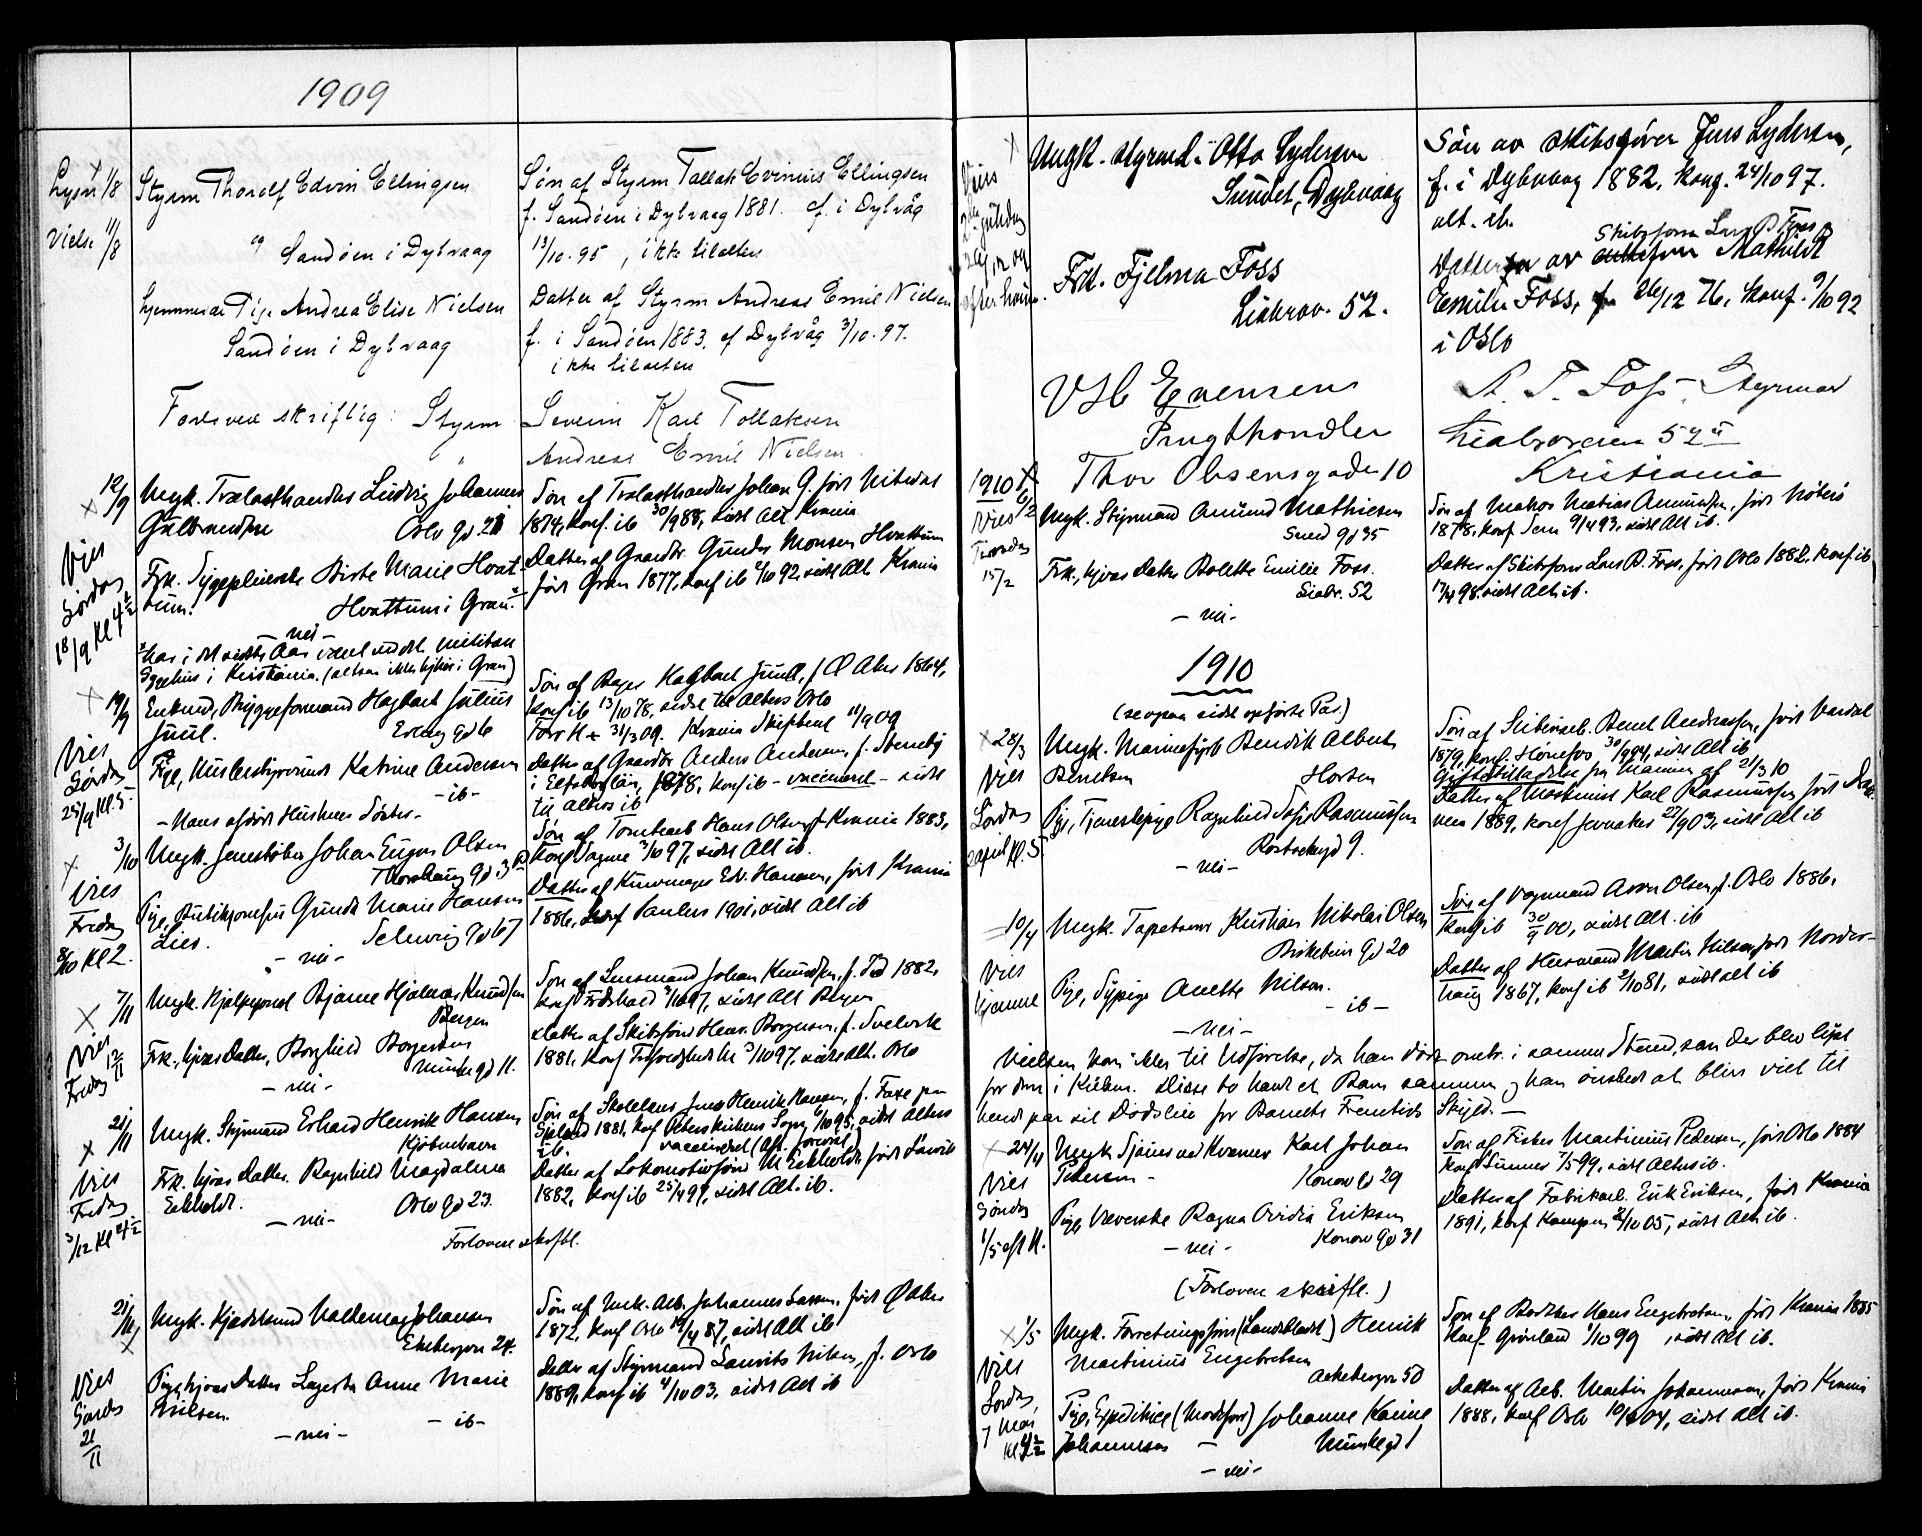 1909
Lyst 1/8
Vielse 11/8
Styrm Thorolf Edvin Ellingsen
og Sandöen i Dybvaag
hjemmevær. Pige Andrea Elise Nielsen
Sandöen i Dybvaag
Forlovere skriftlig: Styrm
Søn af Styrm Tallak Evinius Ellingsen
f. Sandöen i Dybvaag 1881. cf. i Dybvåg
13/10.95, ikke tilalters
Datter af Styrm Andreas Emil Nielsen
f. i Sandöen 1883. cf Dybvåg 3/10.97.
ikke tilalters
Severin Karl Tollaksen
Andreas Emil Nielsen.
x 12/9
Vies
Lørdag
18/9 Kl 4 1/2
Ungk. Trælasthandler Ludvig Johannes
Gulbrandsen Oslo gd. 21
Frk. Sygepleierske Birthe Marie Hvat-
tum. Hvattum i Gran.
- nei -
har i det sidste Aar været ved det militære
Sygehus i Kristiania. (altsaa ikke hjemme i Gran)
Søn af Trælasthandler Johan G. født Nitedal
1874, konf. ib 30/9 88, sidst Alt. Krania
Datter af Gaardbr. Gunder Monsen Hvattum
født Gran 1877, konf ib 2/10 92, sidst Alt Krania
x 19/9
Vies
Lørdag
25/9 Kl. 5.
Enkmd, Bryggeformand Hagbart Julius
Juul. gd 6
Pge, Husbestyrerinde Katrine Andersen
- ib -
- Hans afdøde Hustrues Søster -
Søn af Bager Hagbart Juul, f Ø Aker 1864,
konf ib 13/10 78, sidst til Alters Oslo
Forr H + 31/3 09. Krania Skifteret 11/9 09
Datter af Gaardbr Anders Andersen, f. Steneby
i Elfsborglän, 1878, konf ib - vaccineret - sidst
til Alters ib
x 3/10
Vies
Fredag
8/10 Kl 2.
Ungk. Jernstøber Johan Eugen Olsen
gd 3
Pge, Butikjomfru Gunda Marie Hansen
Lies. Selvvig gd 67
- nei -
Søn af Tomtearb Hans Olsen f Krania 1883,
Konf Sagene 3/10 97, sidst Alt ib.
Datter af Edv. Hansen, født Krania
1886, konf Paulus 1901, sidst Alt ib
x 7/11
Vies
Fredag 12/11
Ungk. Bjarne Hjalmar Knudsen
Bergen
Frk., hjvær. Datter, Borghild Borgersen
Munkegd 11.
- nei -
Søn af Lensmand Johan Knudsen, f. 1882,
konf Fredshald 3/10 97, sidst Alt Bergen
Datter af Skibsfører Henr. Borgersen, f. Svelvik
1881, konf 3/10 97, sidst Alt. Oslo
x 21/11
Vies
Fredag
3/12 Kl 4 1/2
Ungk. Styrmand Erhard Henrik Hansen
Kjøbenhavn
Frk. hjvær. Datter. Ragnhild Magdalena
Eckholdt. Oslo gd 23.
- nei -
Forlovere skriftl.
Søn af Skolelærer Jens Henrik Hansen, f. Faxe paa
Sjælland 1881, konf Peterskirkens Sogn 1/10 95, sidst Alters
ib. vaccineret (Aft. forevist)
Datter af Lokomotivfører M Eckholdt født Larvik
1882, konf ib 25/4 97, sidst Alt. ib.
21/11 x
Vies
Søndag
21/11
Ungk. Kjædesmed Valdemar Johansen
Ekebergvn 24.
Pige, hjvær. Datter Lagertha Anne Marie
Nielsen. - ib -
- nei -
Søn af Arb. Johannes Larsen, født Ø Aker
1872, konf Oslo 10/4 87, sidst Alt ib
Datter af Styrmand Laurits Nilsen, f. Oslo
1889, konf ib 4/10 03, sidst Alt ib
x
Vies
Ungk. Styrmand Otto Lydersen
Sundet, Dybvaag
Frk. Fjelma Foss
Liabrov. 52.
V H Evensen
Frugthandler
Thor Olsensgade 10
Søn av Skibsfører Jens Lydersen,
f. i Dybvaag 1882, konf. 24/10 97.
alt. ib.
Skibsfører Lars P Foss
Datter av Mathilde
Emilie Foss, f. 26/12 76, konf. 9/10 92
i Oslo
A. T. Foss - Styrmand
Liabroveien 52 II
Kristiania
1910 x
6/2
Vies
Tirsdag
15/2
Ungk. Styrmand Amund Mathiesen
Sverd gd 35
Frk., hjvær. Datter Bolette Emilie Foss.
Liabr. 52
- nei -
Søn af Matias Amundsen, født
1878, konf Sem 9/4 93, sidst Alt ib.
Datter af Skibsfører Lars P. Foss, født Oslo 1882, konf. ib
17/4 98. sidst Alt ib.
1910
(se ogsaa sidst opførte Par.)
x 28/3
Vies
Lørdag
2 april Kl. 5
Ungk. Marinefyrb Bendik Albert
Bendiksen Horten
Pge, Tjenestepige Ragnhild Sofie Rasmussen
Rostockgd 9.
- nei -
Søn af Bernt Andreassen, født Vardal
1879, konf. Hønefos 30/9 94, sidst Alt ib
Giftetilladelse fra Marinen af 21/3 10
Datter af Maskinist Karl Rasmussen født
1889, konf Jevnaker 27/9 03, sidst Alt ib
10/4
Vies
hjemme
Ungk. Tapetserer Kristian Nikolai Olsen
Birkebein gd 20
Pige, Sypige Anette Nilsen.
- ib -
- nei -
Søn af Vognmand Aron Olsen f. Oslo 1886,
konf ib 30/9 00, sidst Alt. ib
Datter af Husmand Martin Nilsen født Norder-
haug 1867, konf ib 2/10 81, sidst Alt ib
Vielsen kom ikke til Udførelse, da han døde omtr. i samme Stund, som der blev lyst
for dem i Kirken. Disse to havde et Barn sammen og han ønsket at blive viet til
hende paa sit Dødsleie for Barnets Fremtids Skyld. -
x 24/4
Vies
Søndag
1/5 eft H.
Ungk Karl Johan
Pedersen - Konow gd 29
Pige, Væverske Ragna Ovidia Eriksen
- nei - Konow gd 31
(Forlovere skriftl.)
Søn af Fisker Martinius Pedersen, født Oslo 1884
konf 7/5 99, sidst Alters ib.
Datter af Fabrikarb. Erik Eriksen, født Krania
1891, konf Kampen 2/10 05, sidst Alt ib.
x 1/5
Vies
Lørdag,
7 Mai
Kl 4 1/2
Ungk. Forretningsfører (Landsbladet) Henrik
Martinius Engebretsen
Aakebergvn 50
Pige, Expeditrice (Modeforr) Johanne Karine
Johannesen - Munkegd 1
- nei -
Søn af Hans Engebretsen, født Krania 1885
konf. Grønland 1/10 99, sidst Alt ib.
Datter af Arb. Martin Johannesen, født Krania
1888, konf Oslo 10/4 04, sidst Alt ib.